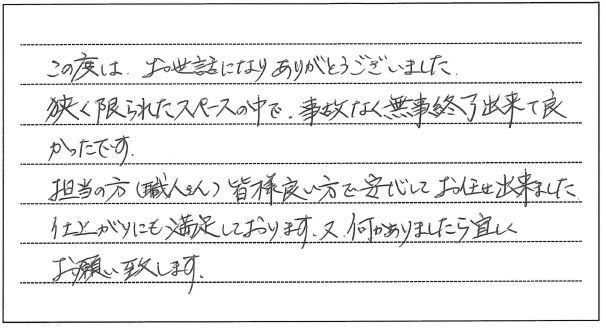 この度は、お世話になりありがとうございました。
狭く限られたスペースの中で、事故なく無事終了出来て良
かったです。
担当の方(職人さん)皆様良い方で安心してお任せ出来ました。
仕上がりにも満足しております。又、何かありましたら宜しく
お願い致します。